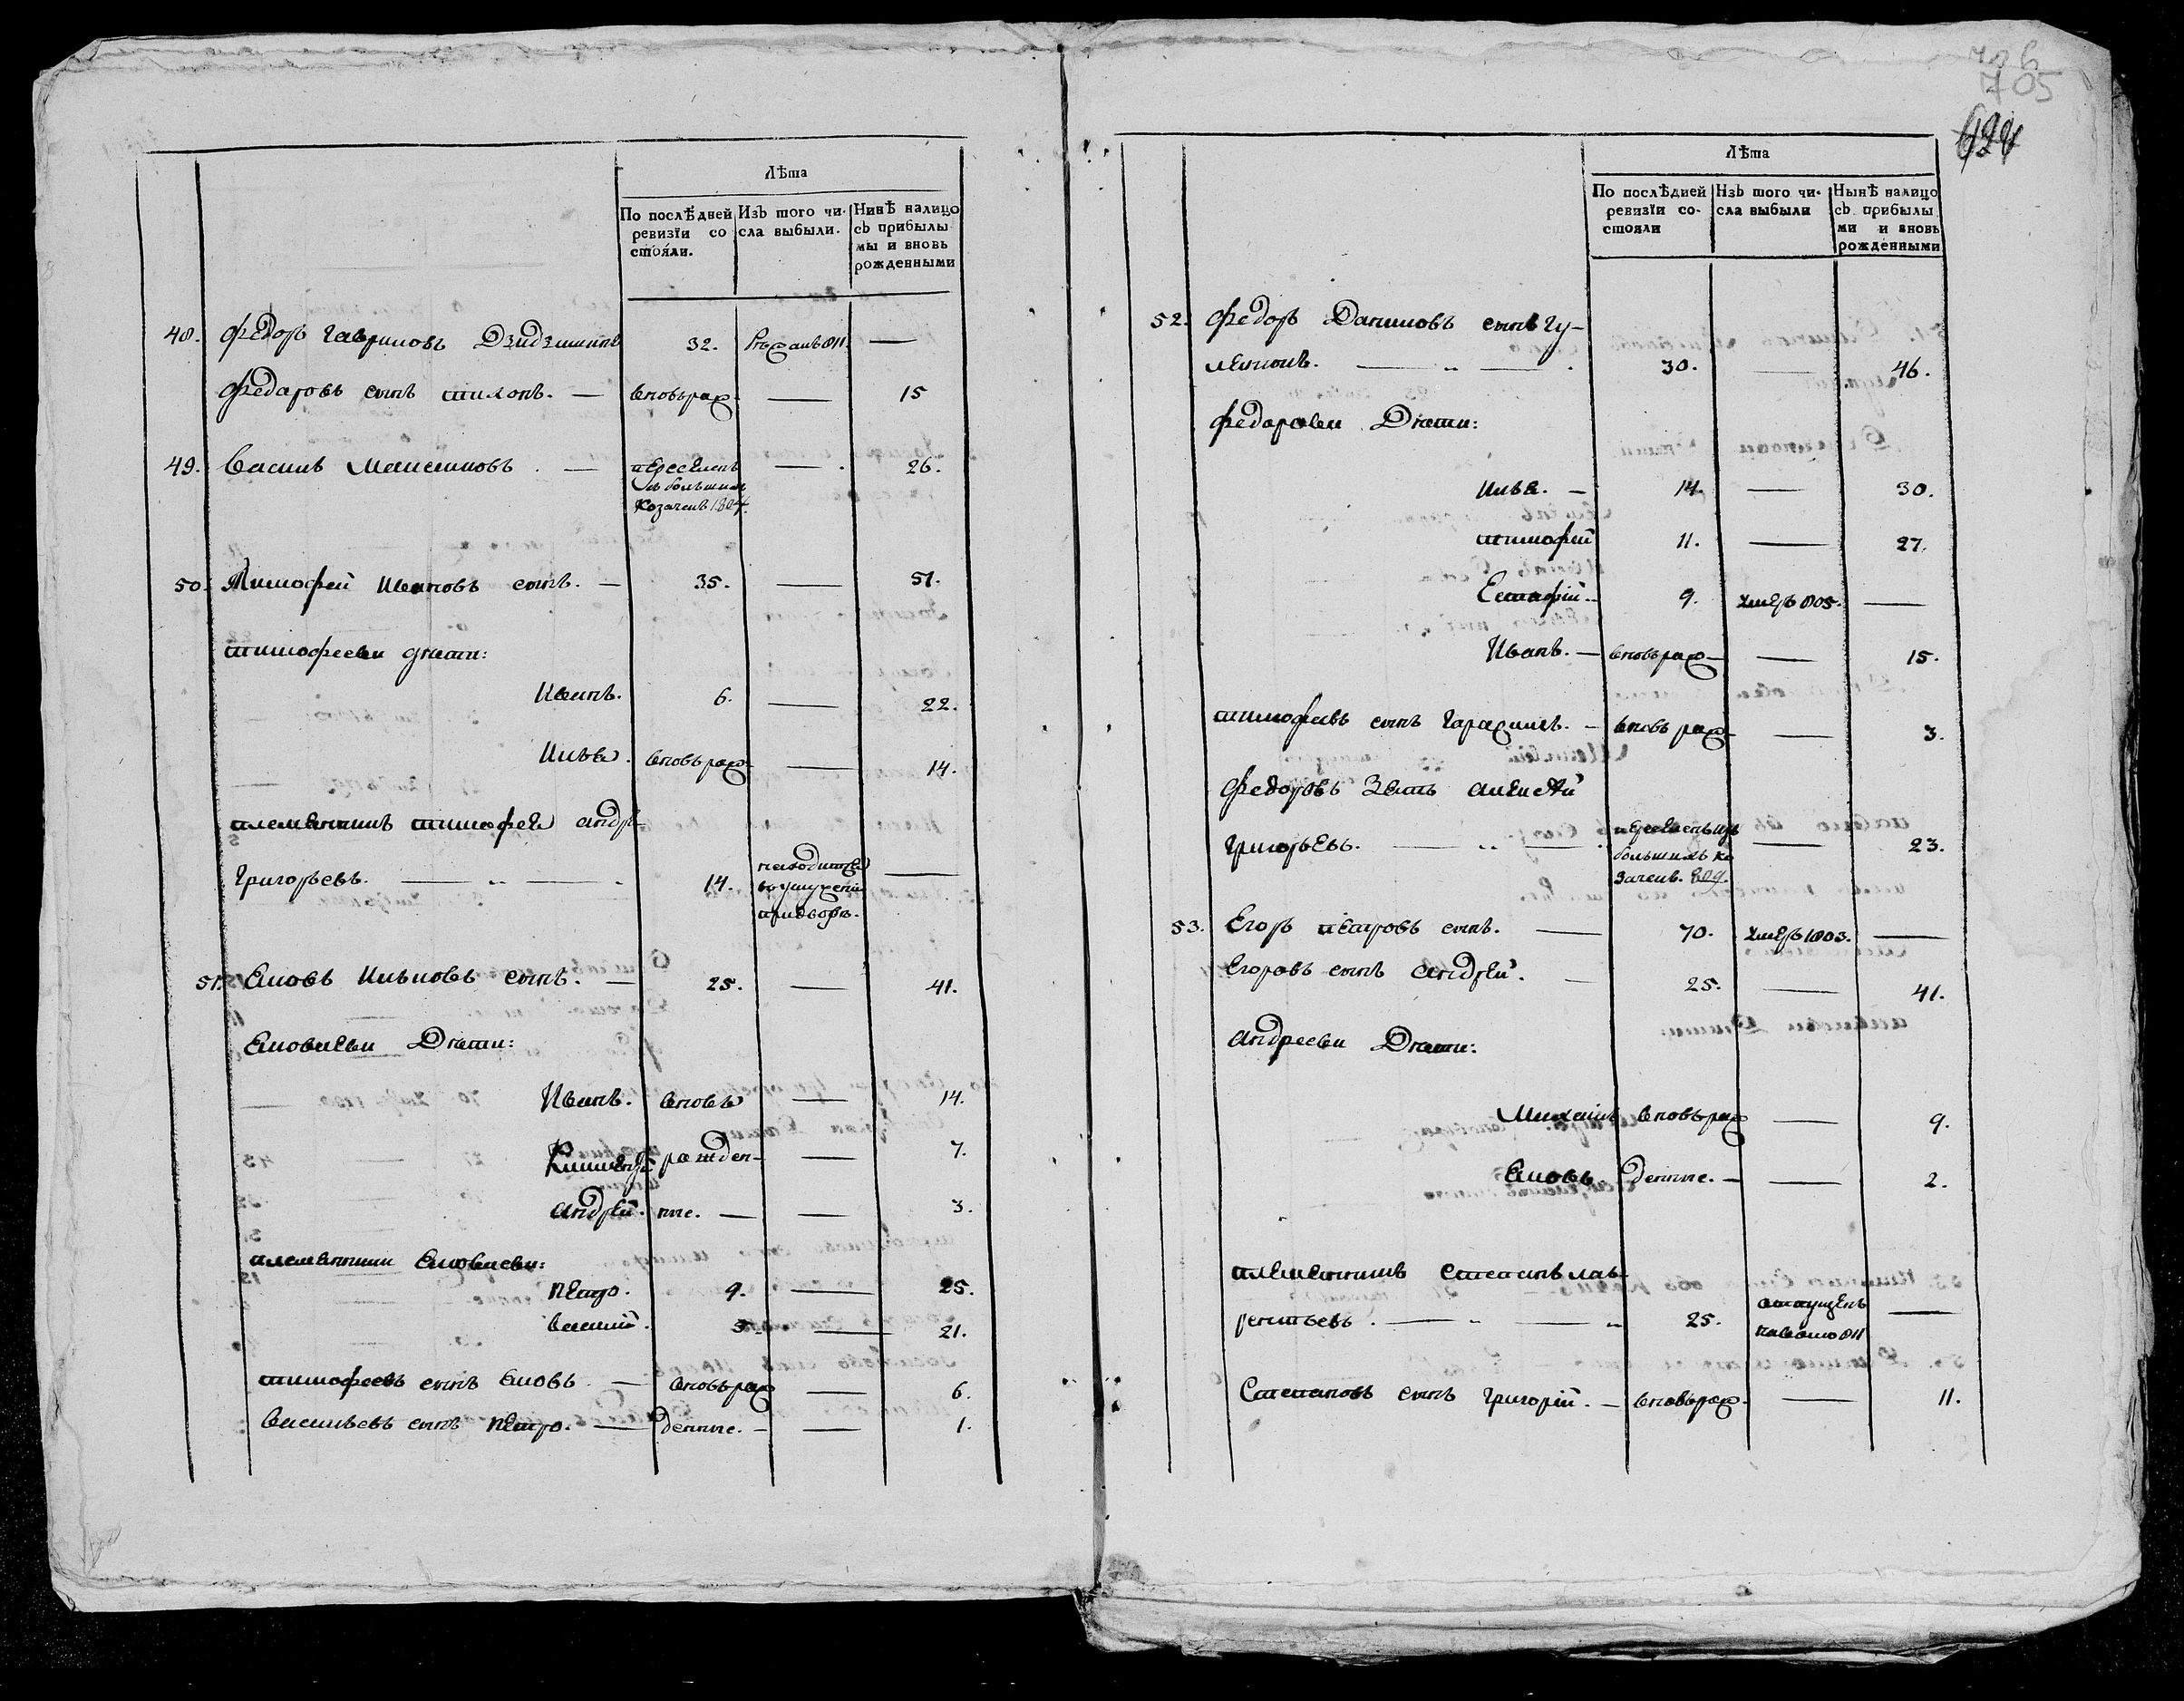 Лѣта
По послѣдней ревизїи состояли.
Изъ того числа выбыли.
Нинѣ налицо съ прибылымы и вновь рожденными
48. Федоръ Гавриловъ 32. 811 —
Федаровъ сынъ — вновьрож— — 15
49. Василь Максимовъ — переселенъ — 26.
изъ большихъ
козачекъ 1804.
50. Тимофей Ивановъ сынъ. — 35. — 51.
тимофееви дѣти:
Иванъ. 6. — 22.
Илья. вновьрож— — 14.
племянникъ тимофея андрей
Григорьевъ. — 14. находится —
въ услуженіи
51. Яковъ Ильиовъ сынъ. — 25. — 41.
Яковлеви Дѣти:
Иванъ. вновь — 14.
рожден— — 7.
андрей. ние. — — 3.
племянники Яковлеви:
Петро. 9. — 25.
василий. 5. — 21.
тимофеевъ сынъ Яковъ — вновьрож — 6.
Васильевъ сынъ Петро. — денние. — — 1.
705
Лѣта
По послѣдней ревизїи состояли
Изъ того числа выбыли
Нынѣ налицо съ прибылыми и вновь рожденными
52. Федоръ Даниловъ сынъ Гу—
30. — 46.
федорови Дѣти:
Илья. — 14. — 30.
тимофій 11. — 27.
Естафій. 9. умеръ 805. —
Иванъ. — вновьрож— — 15.
тимофѣевъ сынъ Гарасимъ. — вновьрож— — 3.
Федоровъ Зять алексѣй
Григорьевъ. — переселенъ изъ — 23.
большихъ ко
зачекъ. 809.
53. Егоръ петровъ сынъ. — 70. умеръ 1803. —
Егоровъ сынъ андрей. — 25. — 41.
андрееви Дѣти:
Михаилъ вновьрож — 9.
Яковъ денние. — — 2.
племянникъ степанъ лав—
рентьевъ. — 25. отпущенъ —
811
Степановъ сынъ григорій. — вновьрож— — 11.